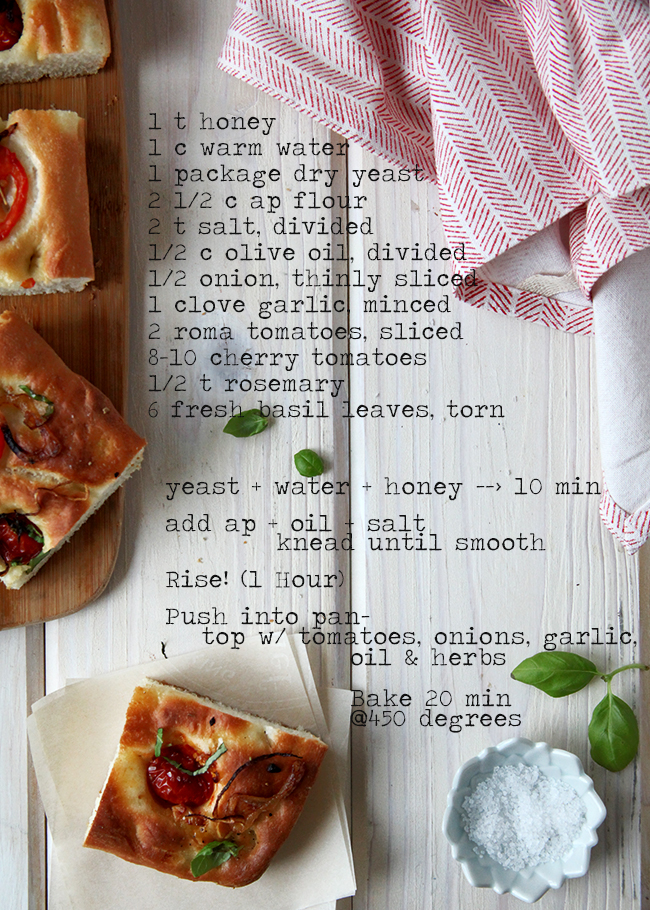 1 t honey
1 c warm water
1 package dry yeast
2 1/2 c ap flour
2 t salt, divided
1/2 c olive oil, divided
1/2 onion, thinly sliced
1 clove garlic, minced
2 roma tomatoes, sliced
8-10 cherry tomatoes
1/2 t rosemary
6 fresh basil leaves, torn
yeast + water + honey --> 10 min
add ap + oil + salt
knead until smooth
Rise! (1 Hour)
Push into pan-
top w/ tomatoes, onions, garlic,
oil & herbs
Bake 20 min
@450 degrees